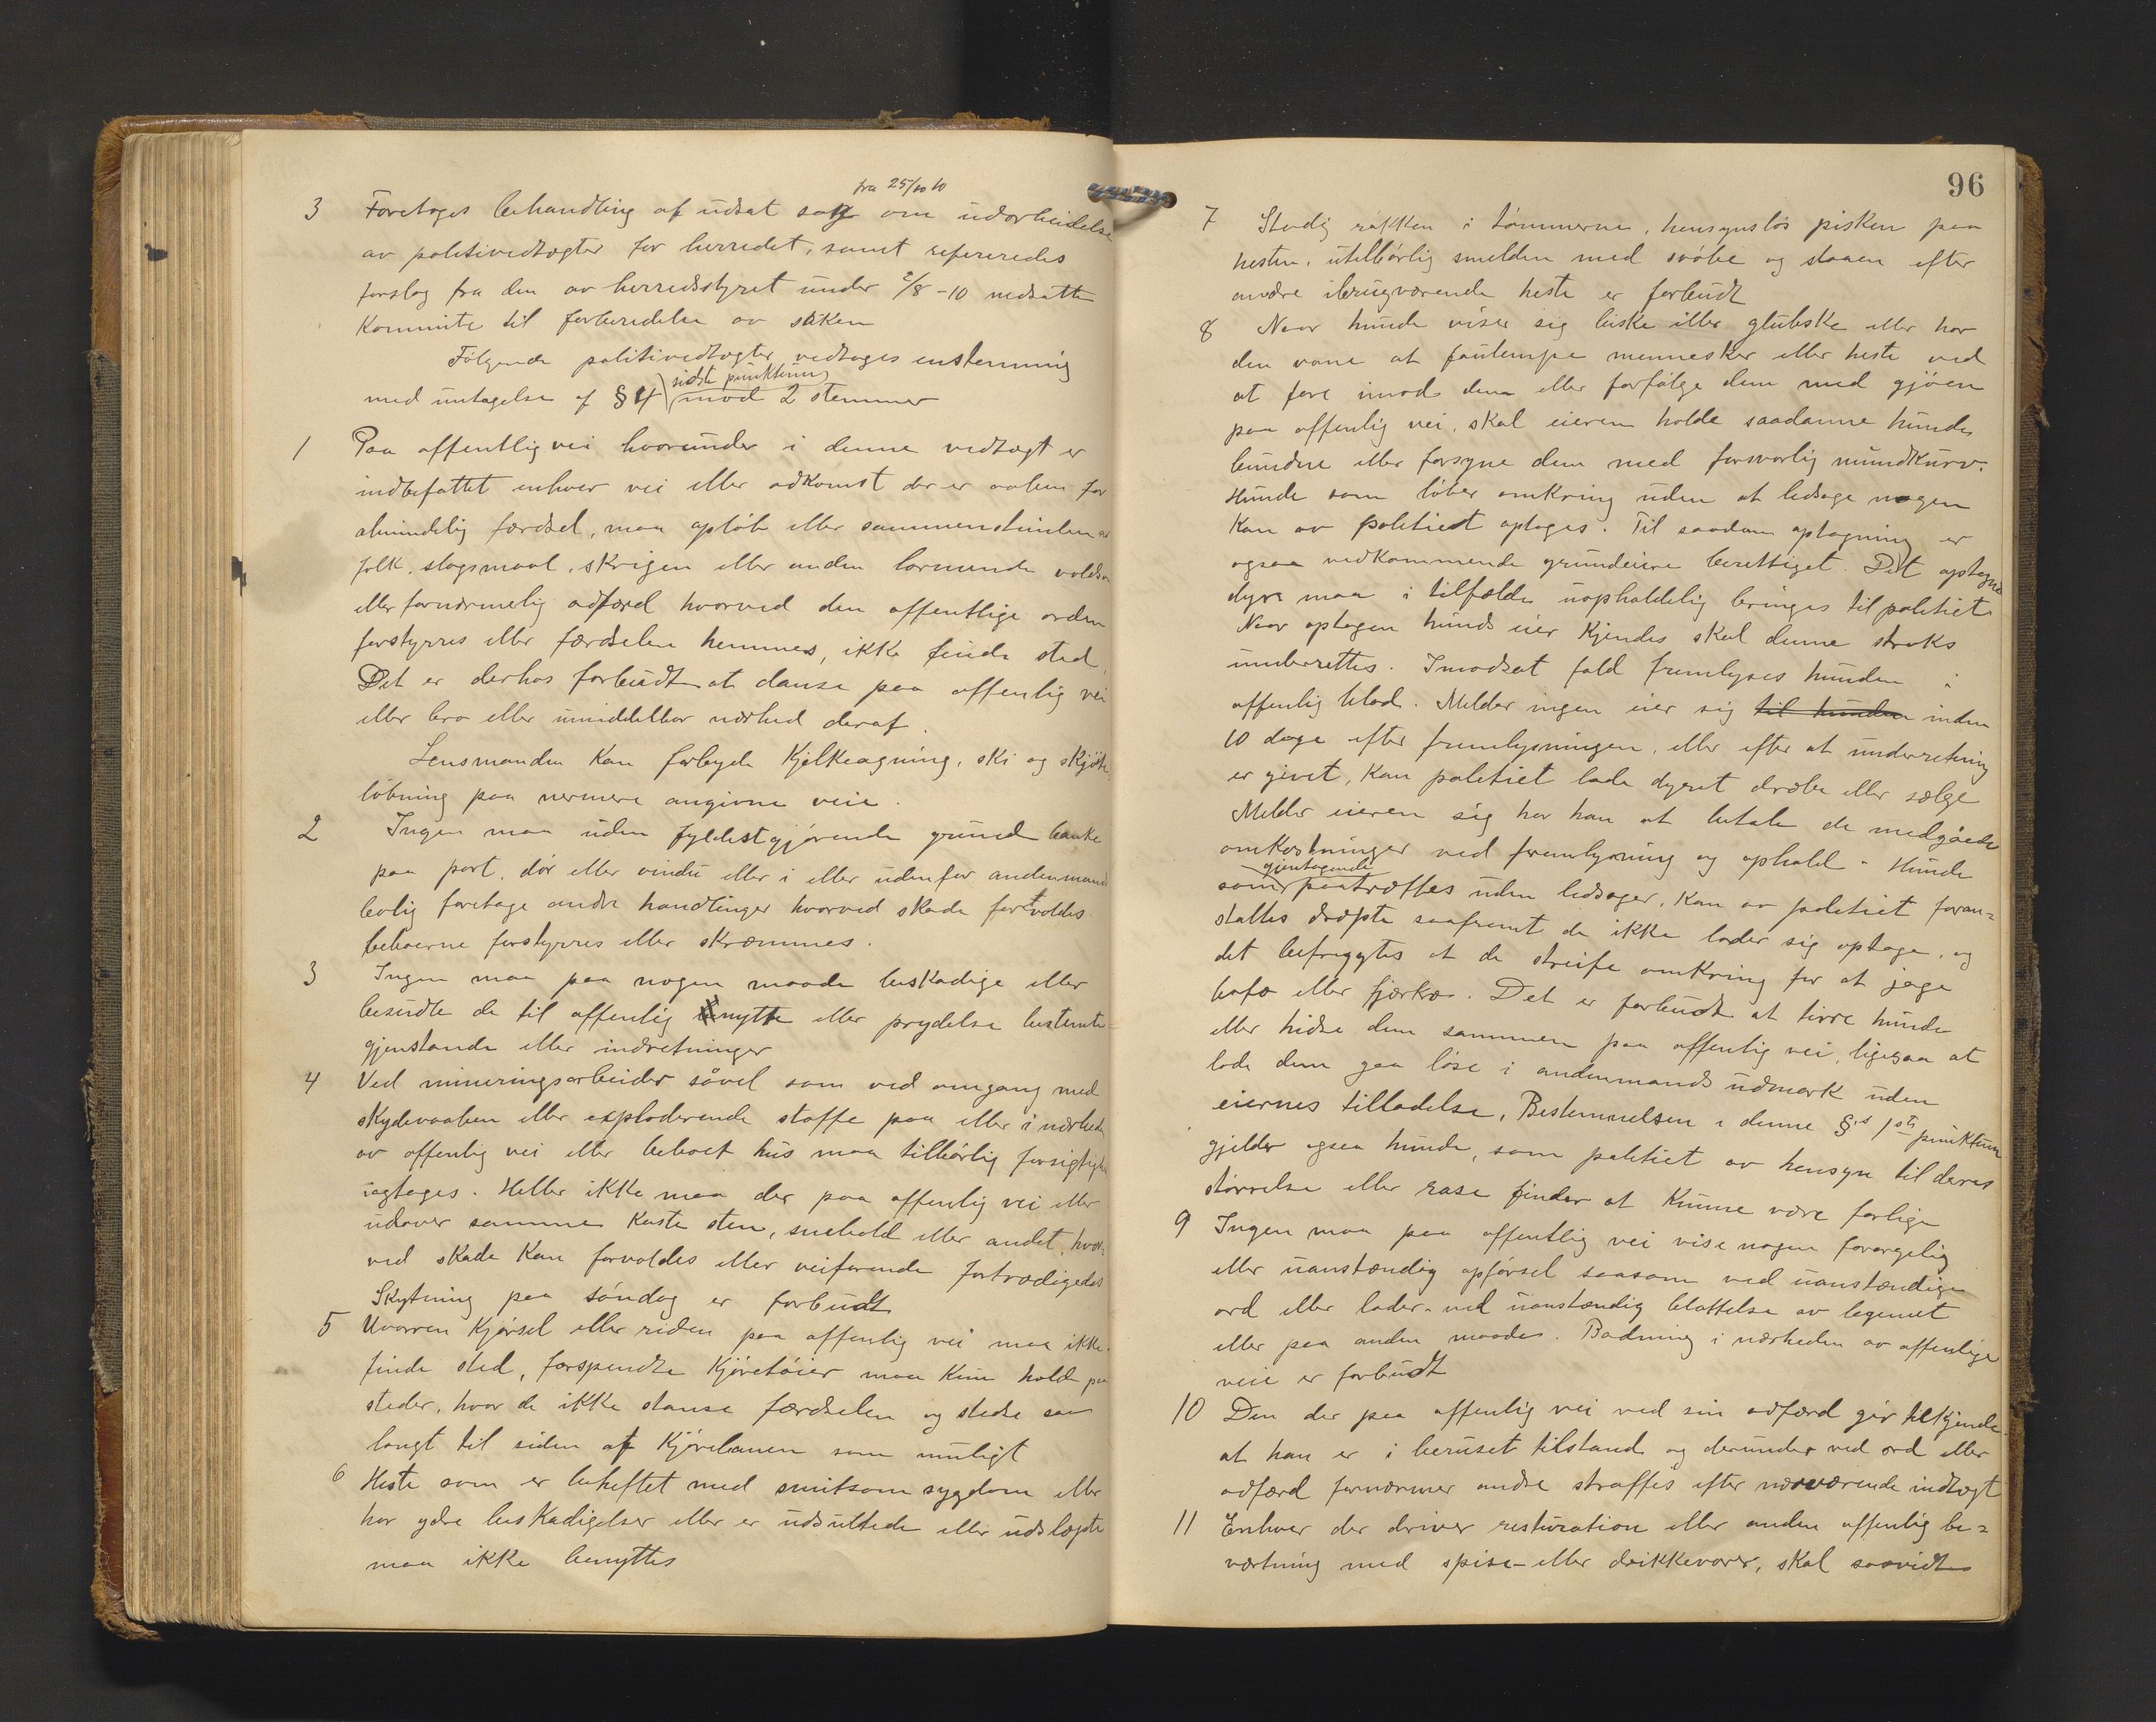 fra 25/10 10
3 Foretoges behandling af udsat sag om udarbeidelse
av politivedtægter for herredet, samt refereredes
forslag fra den av herredsstyret under 2/8-10 nedsatte
Kommite til forberedelse av saken
Følgende politivedtægter vedtoges enstemmig
med untagelse af § 4 sidste punktum mod 2 stemmer
1 Paa offentlig vei hvorunder i denne vedtægt er
indbefattet enhver vei eller adkomst der er aaben for
almindelig færdsel, maa opløb eller sammenstimlen av
folk, slagsmaal, skrigen eller anden larmende voldsom
eller fornærmelig adfærd hvorved den offentlige orden
forstyrres eller færdselen hemmes, ikke finde sted.
Det er derhos forbudt at danse paa offenlig vei
eller bro eller umiddelbar nærhed deraf.
Lensmanden Kan forbyde Kjælkeagning, ski og skjøite-
løbning paa nermere angivne veie.
2 Ingen maa uden fyldestgjørende grund banke
paa port, dør eller vindu eller i eller udenfor andenmands
bolig foretage andre handlinger hvorved skade forvoldes
beboerne forstyrres eller skræmmes.
3 Ingen maa paa nogen maade beskadige eller
besudle de til offenlig nytte eller prydelse bestemte
gjenstande eller indretninger
4 Ved mineringsarbeider såvel som ved omgang med
skydevaaben eller exploderende stoffe paa eller i nærheden
av offenlig vei eller beboet hus maa tilbørlig forsigtighed
iagtages. Heller ikke maa der paa offenlig vei eller
udover samme Kaste sten, snebold eller andet, hvor-
ved skade Kan forvoldes eller veifarende fortrædiges
Skytning paa søndag er forbudt
5 Uvorren Kjørsel eller riden paa offenlig vei maa ikke
finde sted, forspendte Kjøretøier maa Kun holde paa
steder, hvor de ikke stanse færdselen og stedse saa
langt til siden af Kjørebanen som muligt
6 Heste som er beheftet med smitsom sygdom eller
har ydre beskadigelser eller er udsultede eller udslæpte
maa ikke benyttes
96
7 Stadig rykken i tømmerne, hensynsløs pisken paa
hesten, utilbørlig smelden med svøbe og slaaen efter
andre ibrugværende heste er forbudt
8 Naar hunde viser sig biske eller glubske eller har
den vane at fautempe mennesker eller heste ved
at fare imod dem eller forfølge dem med gjøen
paa offenlig vei, skal eieren holde saadanne hunde
bundne eller forsyne dem med forsvarlig mundkurv.
Hunde som løber omkring uden at ledsage nogen
Kan av politiet optages. Til saadan optagning er
ogsaa vedkommende grundeiere berettiget. Det optagne
dyr maa i tilfælde uopholdelig bringes til politiet.
Naar optagen hunds eier Kjendes skal denne straks
underrettes. I modsat fald fremlyses hunden i
offenlig blad. Melder ingen eier sig til hunden inden
10 dage efter fremlysningen, eller efter at underretning
er givet, Kan politiet lade dyret dræbe eller sælge
Melder eieren sig har han at betale de medgåede
omkostninger ved fremlysning og ophold. Hunde
som gjentagende paatræffes uden ledsager, Kan av politiet foran-
staltes dræpte saafremt de ikke lader sig optage, og
det befrygtes at de streife omkring for at jage
bufæ eller fjærkræ. Det er forbudt at tirre hunde
eller hidse dem sammen paa offenlig vei, ligesaa at
lade dem gaa løse i andenmands udmark uden
eiernes tilladelse. Bestemmelsen i denne §'s 1ste punktum
gjelder ogsaa hunde, som politiet av hensyn til deres
størrelse eller rase finder at Kunne være farlige
9 Ingen maa paa offentlig vei vise nogen forargelig
eller uanstændig opførsel saasom ved uanstændige
ord eller lader, ved uanstændig blottelse av legemet
eller paa anden maade. Badning i nærheden av offenlige
veie er forbudt
10 Den der paa offenlig vei ved sin adfærd gir tilkjende
at han er i beruset tilstand og derunder ved ord eller
adfærd fornærmer andre straffes efter nærværende indtægt
11 Enhver der driver resturation eller anden offenlig be-
værtning med spise- eller drikkevarer, skal saavidt